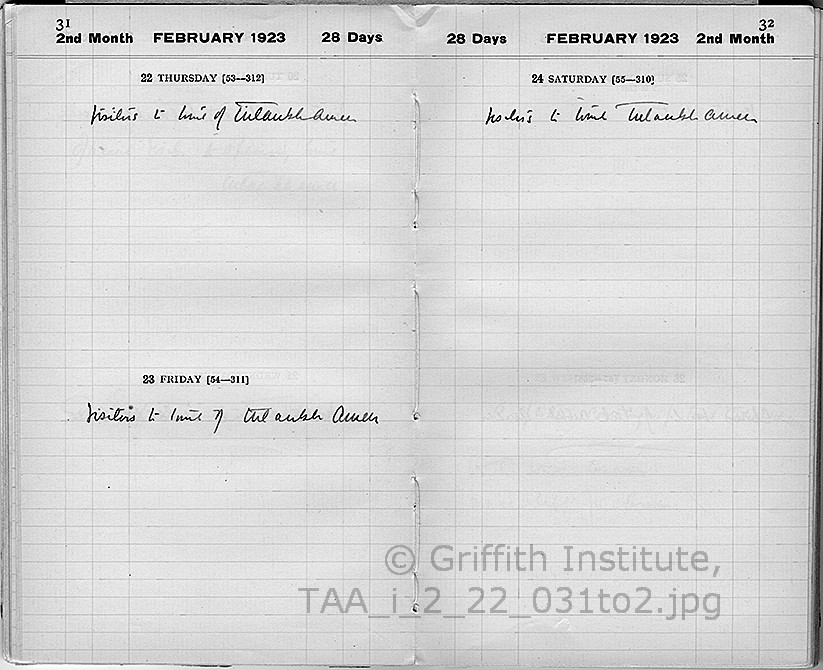 31
2nd Month FEBRUARY 1923 28 Days
22 THURSDAY [53—312]
Visitors to tomb of Tutankh.Amen
23 FRIDAY [54—311]
Visitors to tomb of Tut.ankh.Amen
32
28 Days FEBRUARY 1923 2nd Month
24 SATURDAY [55—310]
Visitors to tomb Tut.ankh.amen
© Griffith Institute,
TAA_i_2_22_031to2.jpg